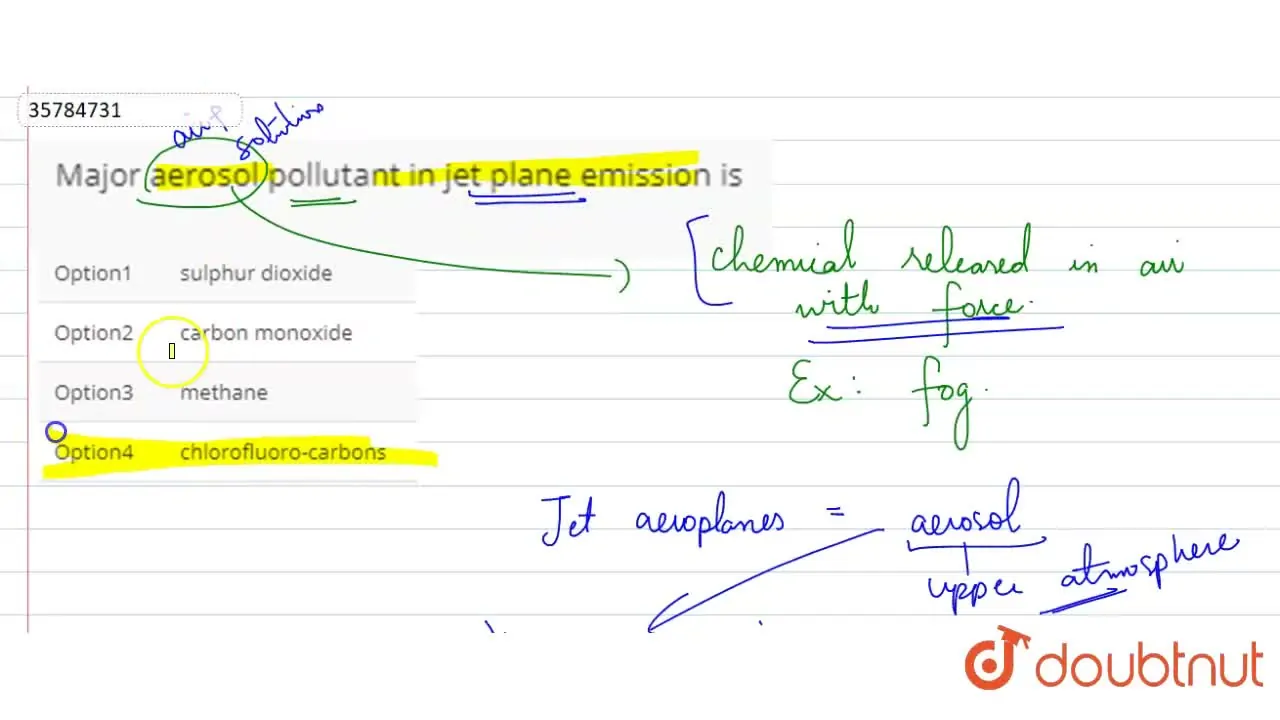 35784731
air solution
Major aerosol pollutant in jet plane emission is
Option1 sulphur dioxide
Option2 carbon monoxide
Option3 methane
Option4 chlorofluoro-carbons
Chemical released in air
with force.
Ex: fog.
Jet aeroplanes = aerosol
upper atmosphere
doubtnut